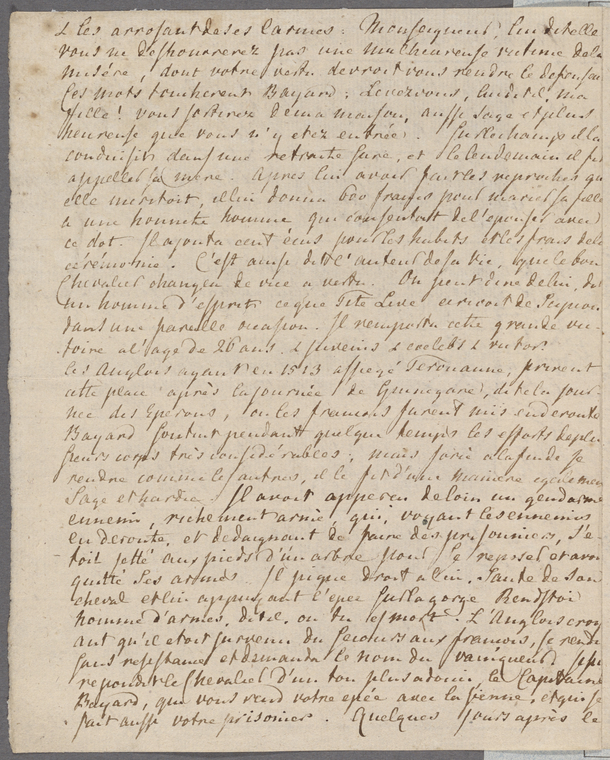 & les arrosant de ses larmes : Monseigneur, lui dit elle
vous ne deshonnrerez pas une malheureuse victime de la
misére, dont votre vertu devroit vous rendre le defenseu
Ces mots toucherent Bayard ; Levez vous, lui dit il, ma
fille ! vous sortirez de ma maison, aussi sage et plus
heureuse que vous n'y etez entrée. Sur le champs il la
conduisit dans une retraite sure, et le lendemain il fit
appeller sa mere. après lui avoir fait les reproches qu
elle meritoit, il lui donna 600 francs pour marier sa fille
a une honnete homme qui consentoit de l'epouser avec
ce dot. Il ajouta cent écus pour les habits et les frais de la
cérémonie. C'est ainsi dit l'auteur de sa vie, que le bon
Chevalier changea de vice a vertu. On peut dire de lui, dit
un homme d'esprit ce que Tite Live ecrivoit de Scipion
dans une pareille occasion. Il remporta cette grande vic-
toire a l'age de 26 ans, & juvenis & coelebs & victor.
les Anglois ayant en 1513 assiegé Terouanne, prirent
cette place après la journée de Guinegate, dite la jour-
née des Eperons, ou les francois furent mis en deroute
Bayard soutint pendant quelque temps les efforts de plu
sieurs corps très considérables ; mais forcé a la fin de se
rendre comme les autres, il le fit d'une maniere egalement
sage et hardie. Il avoit apperçu de loin un gendarme
ennemi, richement armé, qui, voyant les ennemis
en deroute, et dedaignant de faire des prisonniers, s'e-
toit jetté aux pieds d'un arbre pour se reposer et avoit
quitté ses armes. Il pique droit a lui, saute de son
cheval et lui appuyant l'epée sur la gorge Rends toi
homme d'armes, dit il, ou tu es mort. L'Anglois croy
ant qu'il etoit survenu du secours aux francois, se rendit
sans resistance et demanda le nom du vainqueur.
repondit le Chevalier d'un ton plus adouci, le Capitaine
Bayard, qui vous rend votre epée avec la sienne, et qui se
fait aussi votre prisonier. Quelques jours après le